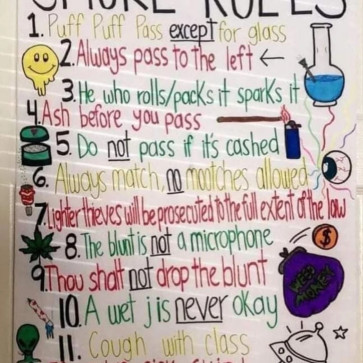 SMOKE RULES
1. Puff Puff Pass except for glass
2. Always pass to the left ←
3. He who rolls/packs it sparks it
4. Ash before you pass
5. Do not pass if it's cashed
6. Always match, no mootches allowed
7. Lighter thieves will be prosecuted to the full extent of the law
8. The blunt is not a microphone
$
9. Thou shalt not drop the blunt
WEED MONEY
10. A wet j is never okay
11. Cough with class